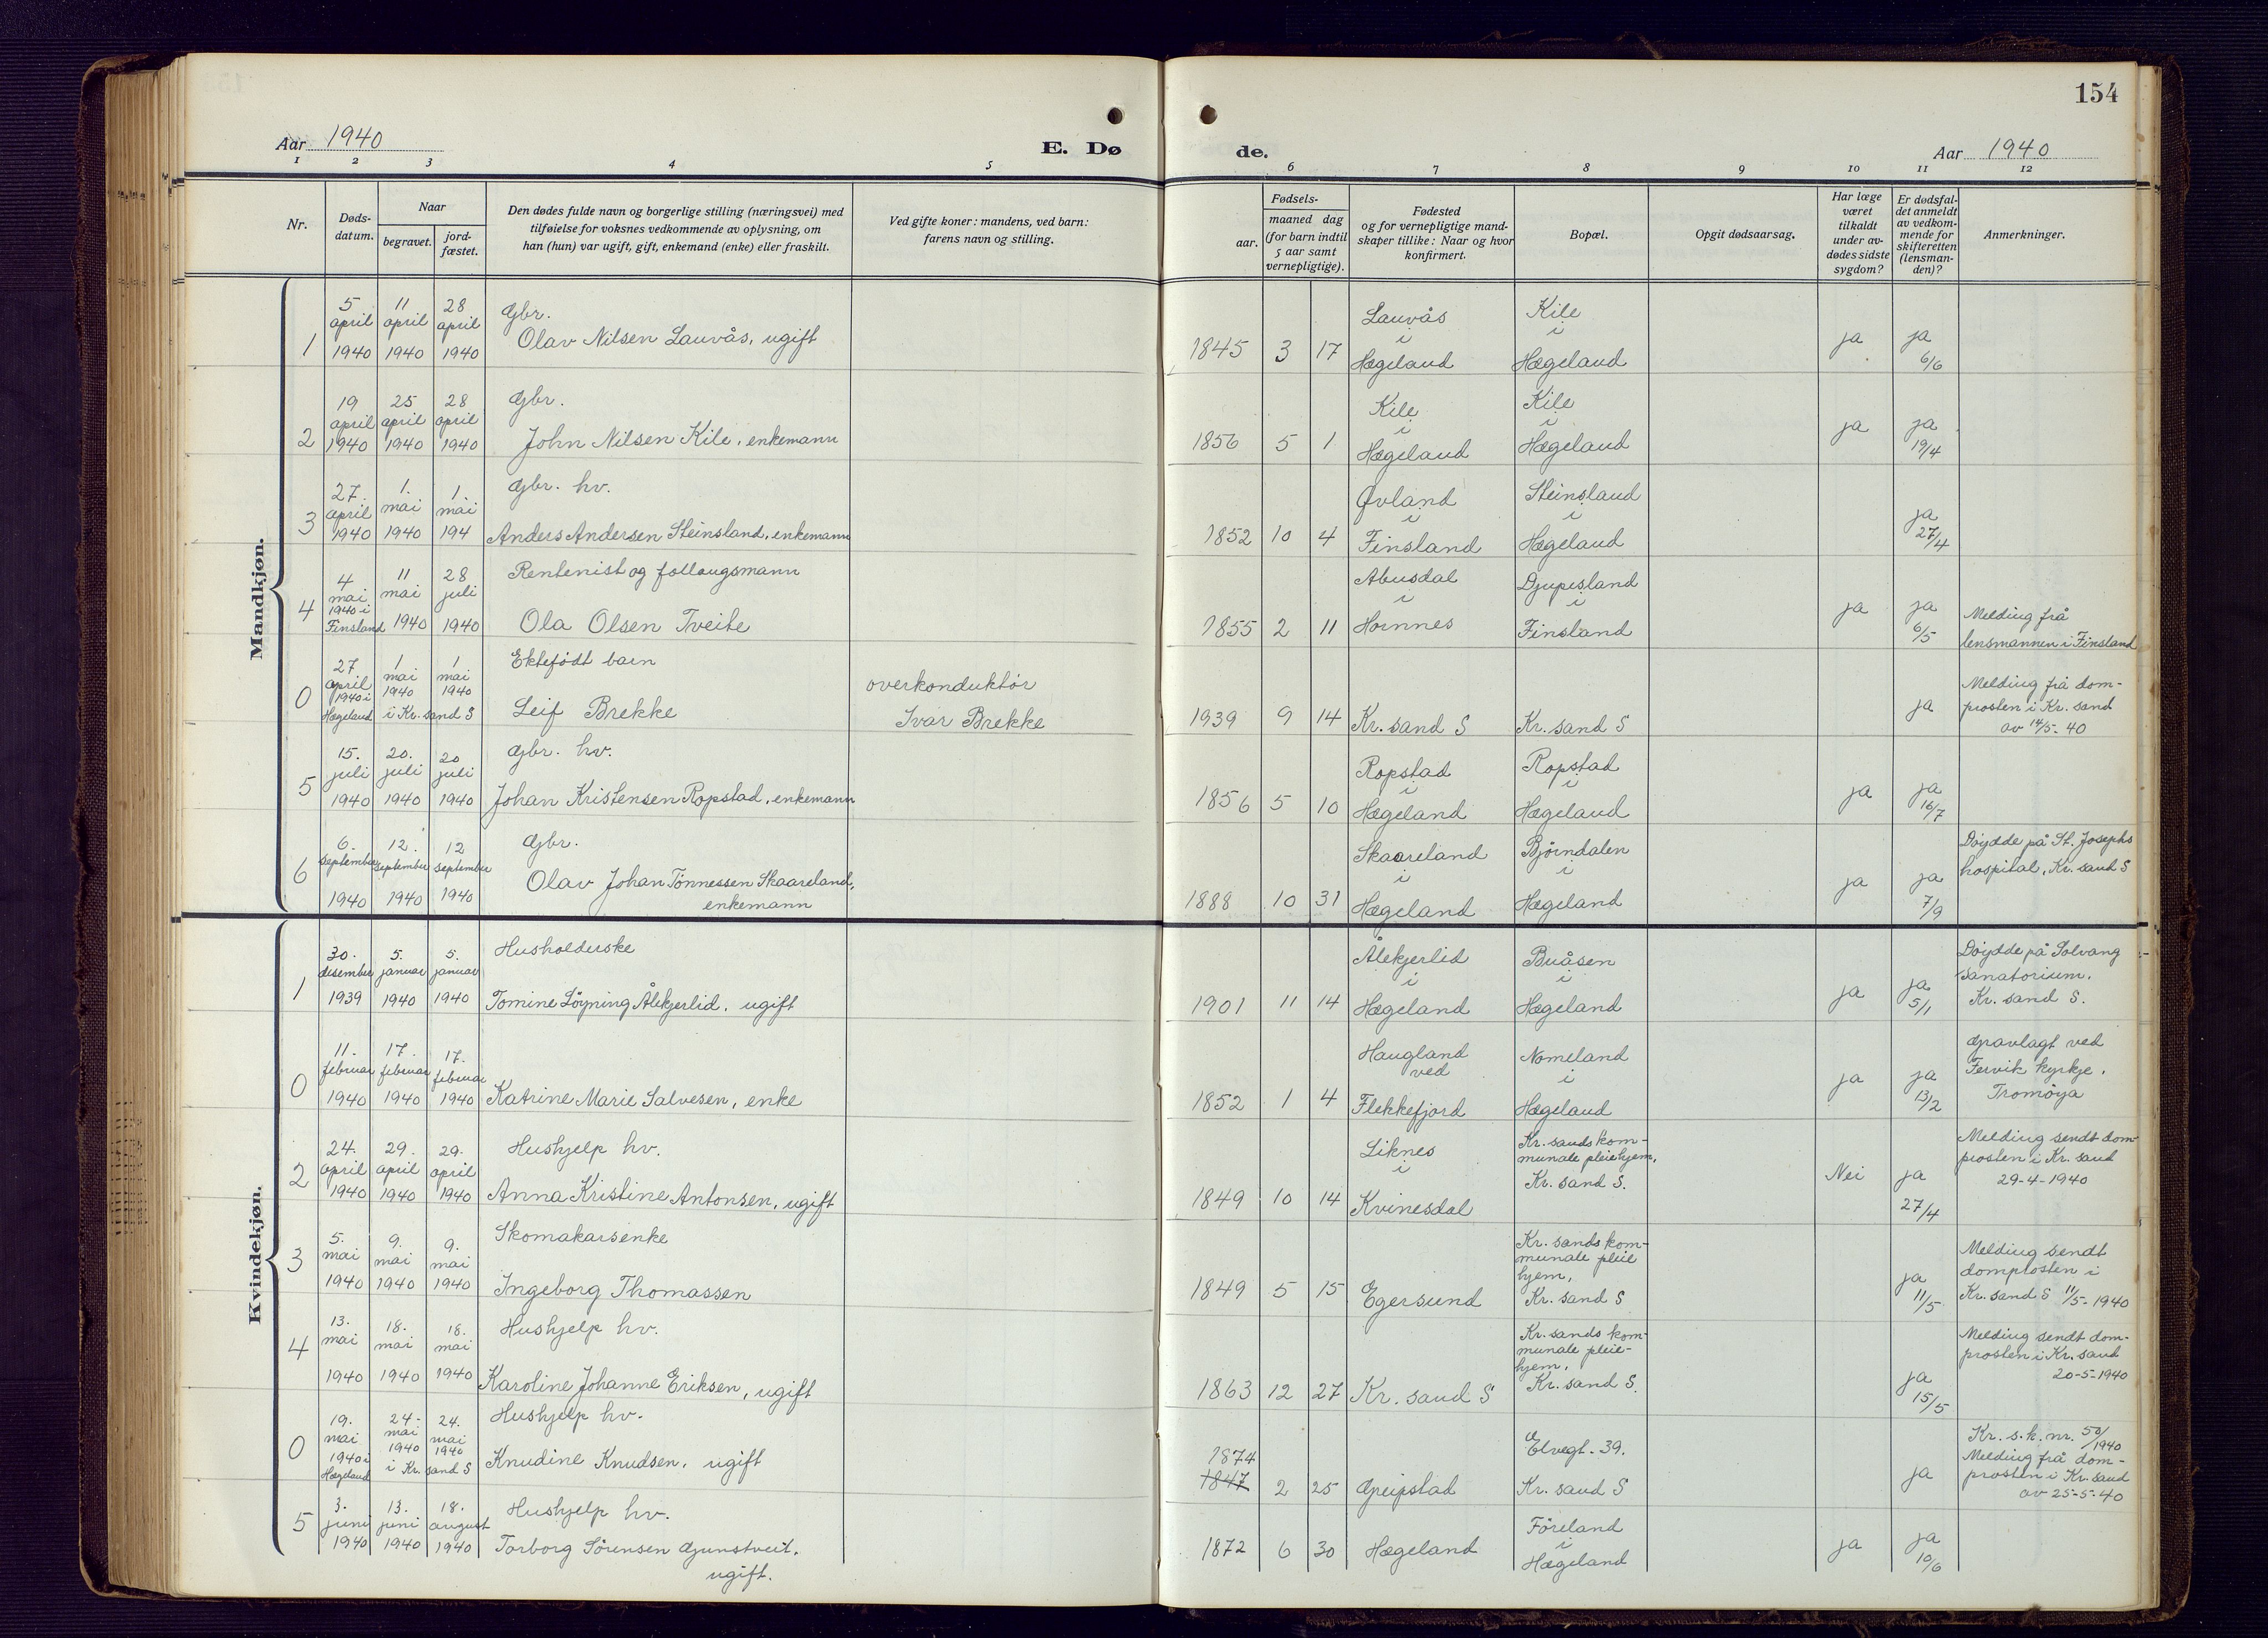 154
Aar 1940
E. Dø
de.
Aar 1940
1 2 3 4 5 6 7 8 9 10 11 12
Nr.
Døds-
datum.
Naar
begravet.
jord-
fæstet.
Den dødes fulde navn og borgerlige stilling (næringsvei) med
tilføielse for voksnes vedkommende av oplysning, om
han (hun) var ugift, gift, enkemand (enke) eller fraskilt.
Ved gifte koner: mandens, ved barn:
farens navn og stilling.
Fødsels-
aar.
maaned dag
(for barn indtil
5 aar samt
vernepligtige).
Fødested
og for vernepligtige mand-
skaper tillike: Naar og hvor
konfirmert.
Bopæl.
Opgit dødsaarsag.
Har læge
været
tilkaldt
under av-
dødes sidste
sygdom?
Er dødsfal-
det anmeldt
av vedkom-
mende for
skifteretten
(lensman-
den)?
Anmerkninger.
Mandkjøn.
1
5 april 1940
11 april 1940
28 april 1940
Gbr.
Olav Nilsen Lauvås, ugift
1845 3 17
Lauvås
i
Hægeland
Kile
i
Hægeland
ja
ja
6/6
2
19 april 1940
25 april 1940
28 april 1940
Gbr.
John Nilsen Kile, enkemann
1856 5 1
Kile
i
Hægeland
Kile
i
Hægeland
ja
ja
19/4
3
27. april 1940
1. mai 1940
1. mai 194
Gbr. hv.
Anders Andersen Steinsland, enkemann
1852 10 4
Øvland
i
Finsland
Steinsland
i
Hægeland
ja
27/4
4
4 mai 1940 i Finsland
11 mai 1940
28 juli 1940
Rentenist og follaugsmann
Ola Olsen Tveite
1855 2 11
Abusdal
i
Hornnes
Djupesland
i
Finsland
ja
ja
6/5
Melding frå
lensmannen i Finsland
0
27 april 1940 i Hægeland
1 mai 1940
1 mai 1940
i Kr. sand S
Ektefødt barn
Leif Brekke
overkonduktör
Ivar Brekke
1939 9 14
Kr. sand S
Kr. sand S
ja
Melding frå dom-
prosten i Kr. sand
av 14/5-40
5
15. juli 1940
20. juli 1940
20 juli 1940
Gbr. hv.
Johan Kristensen Ropstad, enkemann
1856 5 10
Ropstad
i
Hægeland
Ropstad
i
Hægeland
ja
ja
16/7
6
6. september 1940
12. september 1940
12 september 1940
Gbr.
Olav Johan Tönnessen Skaareland,
enkemann
1888 10 31
Skaareland
i
Hægeland
Bjørndalen
i
Hægeland
ja
ja
7/9
Döydde på St. Josephs
hospital, Kr. sand S
Kvindekjøn.
1
30. desember 1939
5. januar 1940
5. januar 1940
Husholderske
Tomine Löyning Ålekjerlid, ugift
1901 11 14
Ålekjerlid
i
Hægeland
Buåsen
i
Hægeland
ja
ja
5/1
Döydde på Solvang
Sanatorium.
Kr. sand S.
0
11. februar 1940
17. februar 1940
17. februar 1940
Katrine Marie Salvesen, enke
1852 1 4
Haugland
ved
Flekkefjord
Nomeland
i
Hægeland
ja
ja
13/2
Gravlagt ved
Færvik kyrkje,
Tromöya
2
24. april 1940
29. april 1940
29. april 1940
Hushjelp hv.
Anna Kristine Antonsen, ugift
1849 10 14
Liknes
i
Kvinesdal
Kr. sands kom-
munale pleiehjem,
Kr. sand S.
Nei
ja
27/4
Melding sendt dom-
prosten i Kr. sand
29-4-1940
3
5. mai 1940
9. mai 1940
9. mai 1940
Skomakarsenke
Ingeborg Thomassen
1849 5 15
Egersund
Kr. sands kom-
munale pleie
hjem,
Kr. sand S
ja
11/5
Melding sendt
domprosten i
Kr. sand S 11/5-1940
4
13. mai 1940
18. mai 1940
18. mai 1940
Hushjelp hv.
Karoline Johanne Eriksen, ugift
1863 12 27
Kr. sand S
Kr. sands kom-
munale pleie-
hjem,
Kr. sand S.
ja
15/5
Melding sendt dom-
prosten i Kr. sand
20-5-1940
0
19. mai 1940 i Hægeland
24. mai 1940
24. mai 1940
i Kr. sand S
Hushjelp hv.
Knudine Knudsen, ugift
1874
1847
2 25
Greipstad
Elvegt. 39.
Kr. sand S
ja
Kr. s. k. nr. 50/1940
Melding frå dom-
prosten i Kr. sand
av 25-5-40
5
3. juni 1940
13. juni 1940
18. august 1940
Hushjelp hv.
Torborg Sörensen Gunstveit,
ugift.
1872 6 30
Hægeland
Föreland
i
Hægeland
ja
ja
10/6